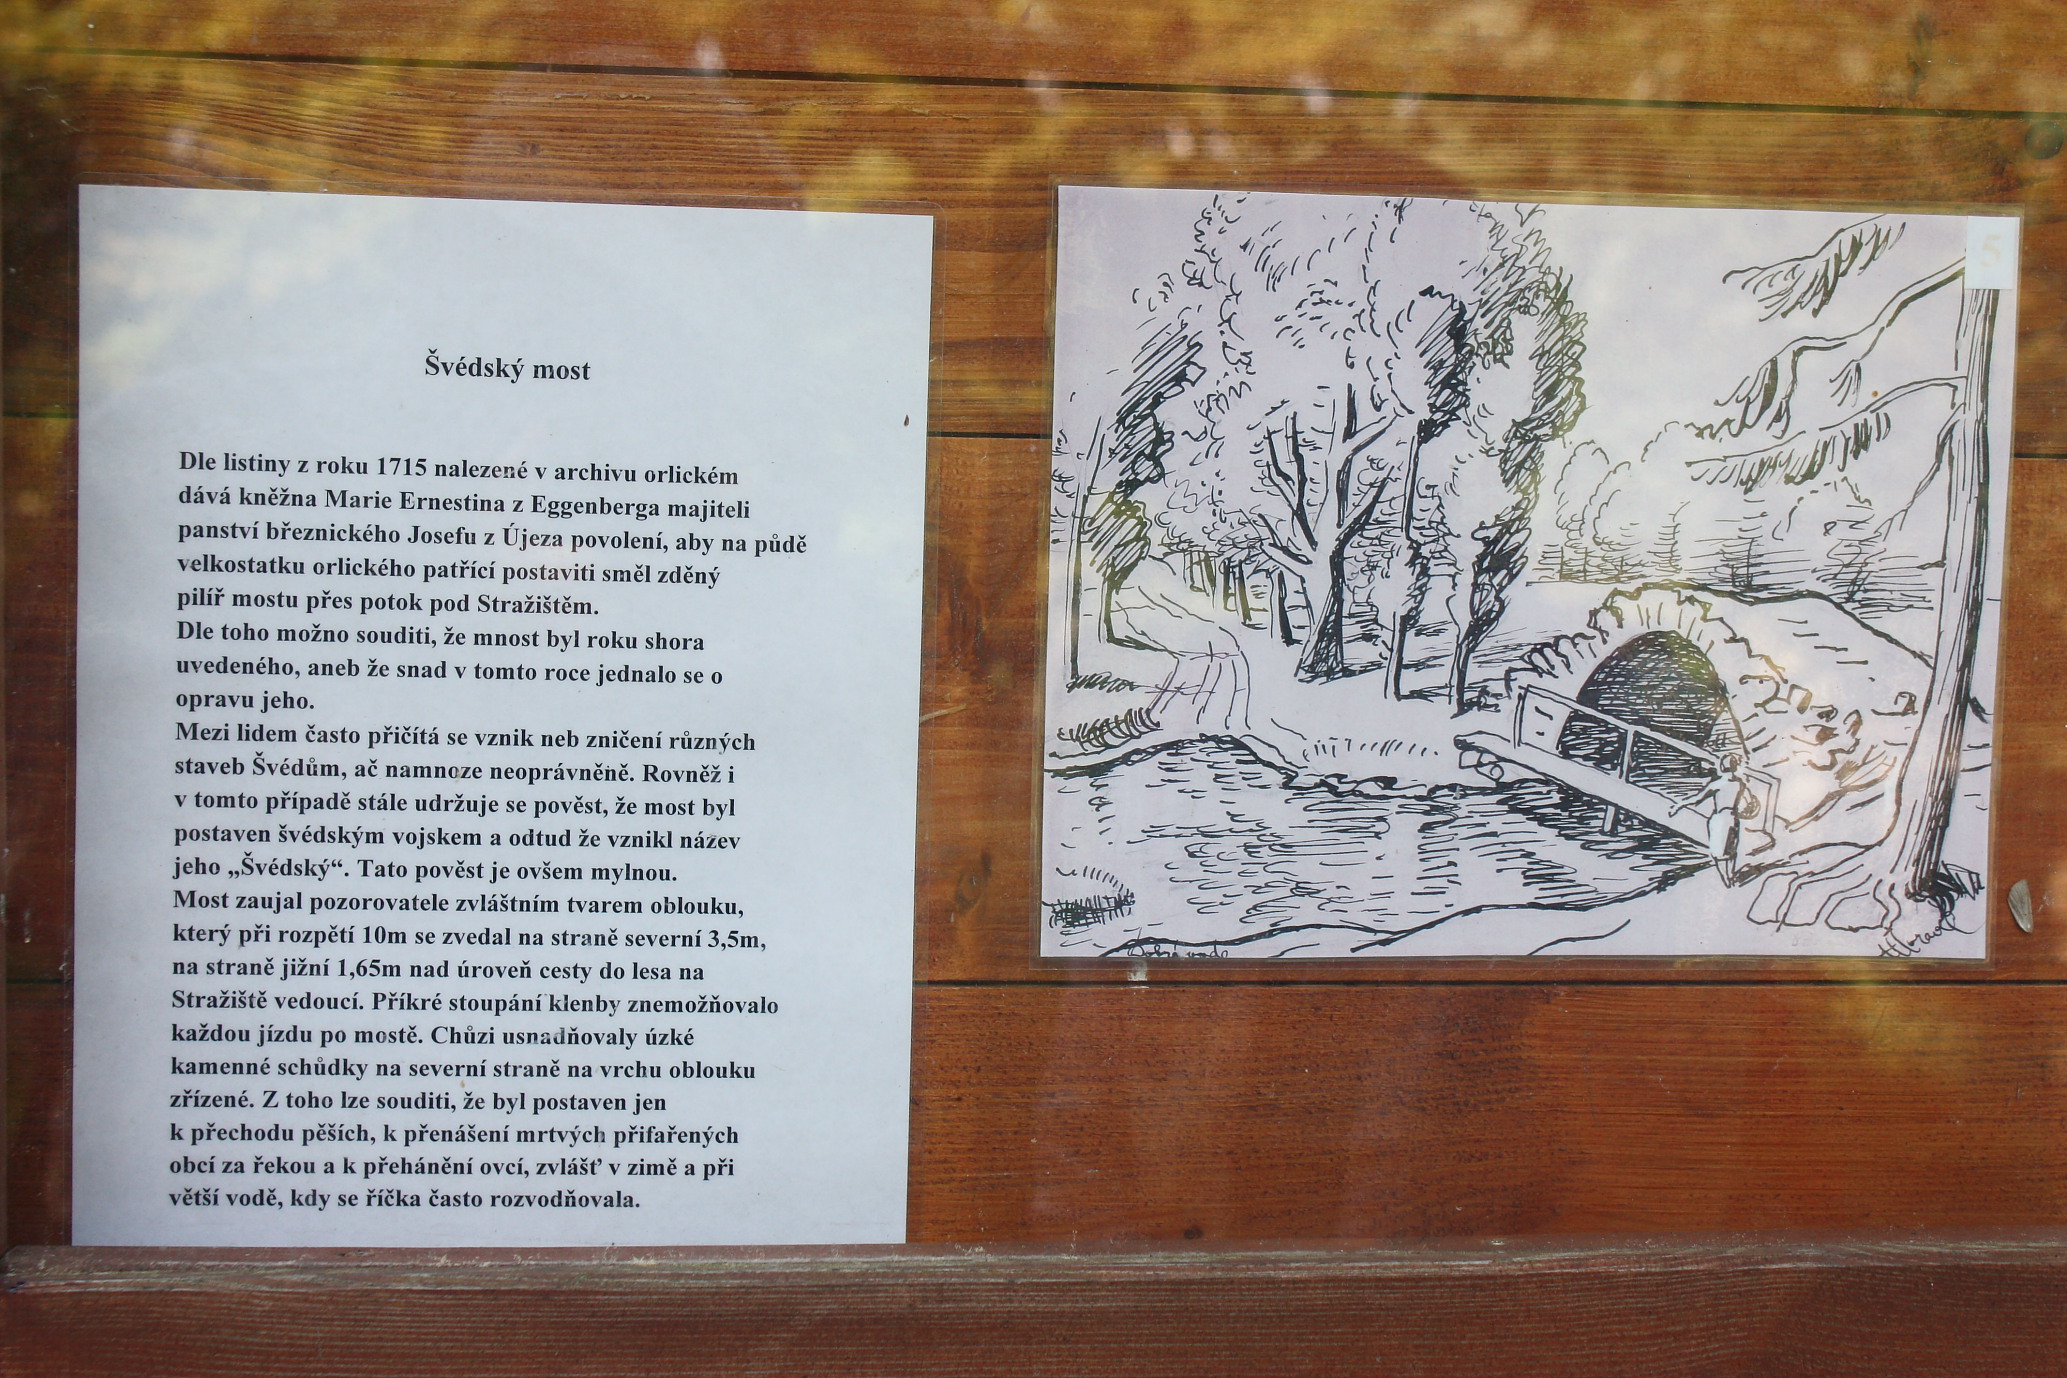 Švédský most
Dle listiny z roku 1715 nalezené v archivu orlickém
dává kněžna Marie Ernestina z Eggenberga majiteli
panství březnického Josefu z Újeza povolení, aby na půdě
velkostatku orlického patřící postaviti směl zděný
pilíř mostu přes potok pod Stražištěm.
Dle toho možno souditi, že mnost byl roku shora
uvedeného, aneb že snad v tomto roce jednalo se o
opravu jeho.
Mezi lidem často přičítá se vznik neb zničení různých
staveb Švédům, ač namnoze neoprávněně. Rovněž i
v tomto případě stále udržuje se pověst, že most byl
postaven švédským vojskem a odtud že vznikl název
jeho „Švédský“. Tato pověst je ovšem mylnou.
Most zaujal pozorovatele zvláštním tvarem oblouku,
který při rozpětí 10m se zvedal na straně severní 3,5m,
na straně jižní 1,65m nad úroveň cesty do lesa na
Stražiště vedoucí. Příkré stoupání klenby znemožňovalo
každou jízdu po mostě. Chůzi usnadňovaly úzké
kamenné schůdky na severní straně na vrchu oblouku
zřízené. Z toho lze souditi, že byl postaven jen
k přechodu pěších, k přenášení mrtvých přifařených
obcí za řekou a k přehánění ovcí, zvlášť v zimě a při
větší vodě, kdy se říčka často rozvodňovala.
5
Dobrá voda